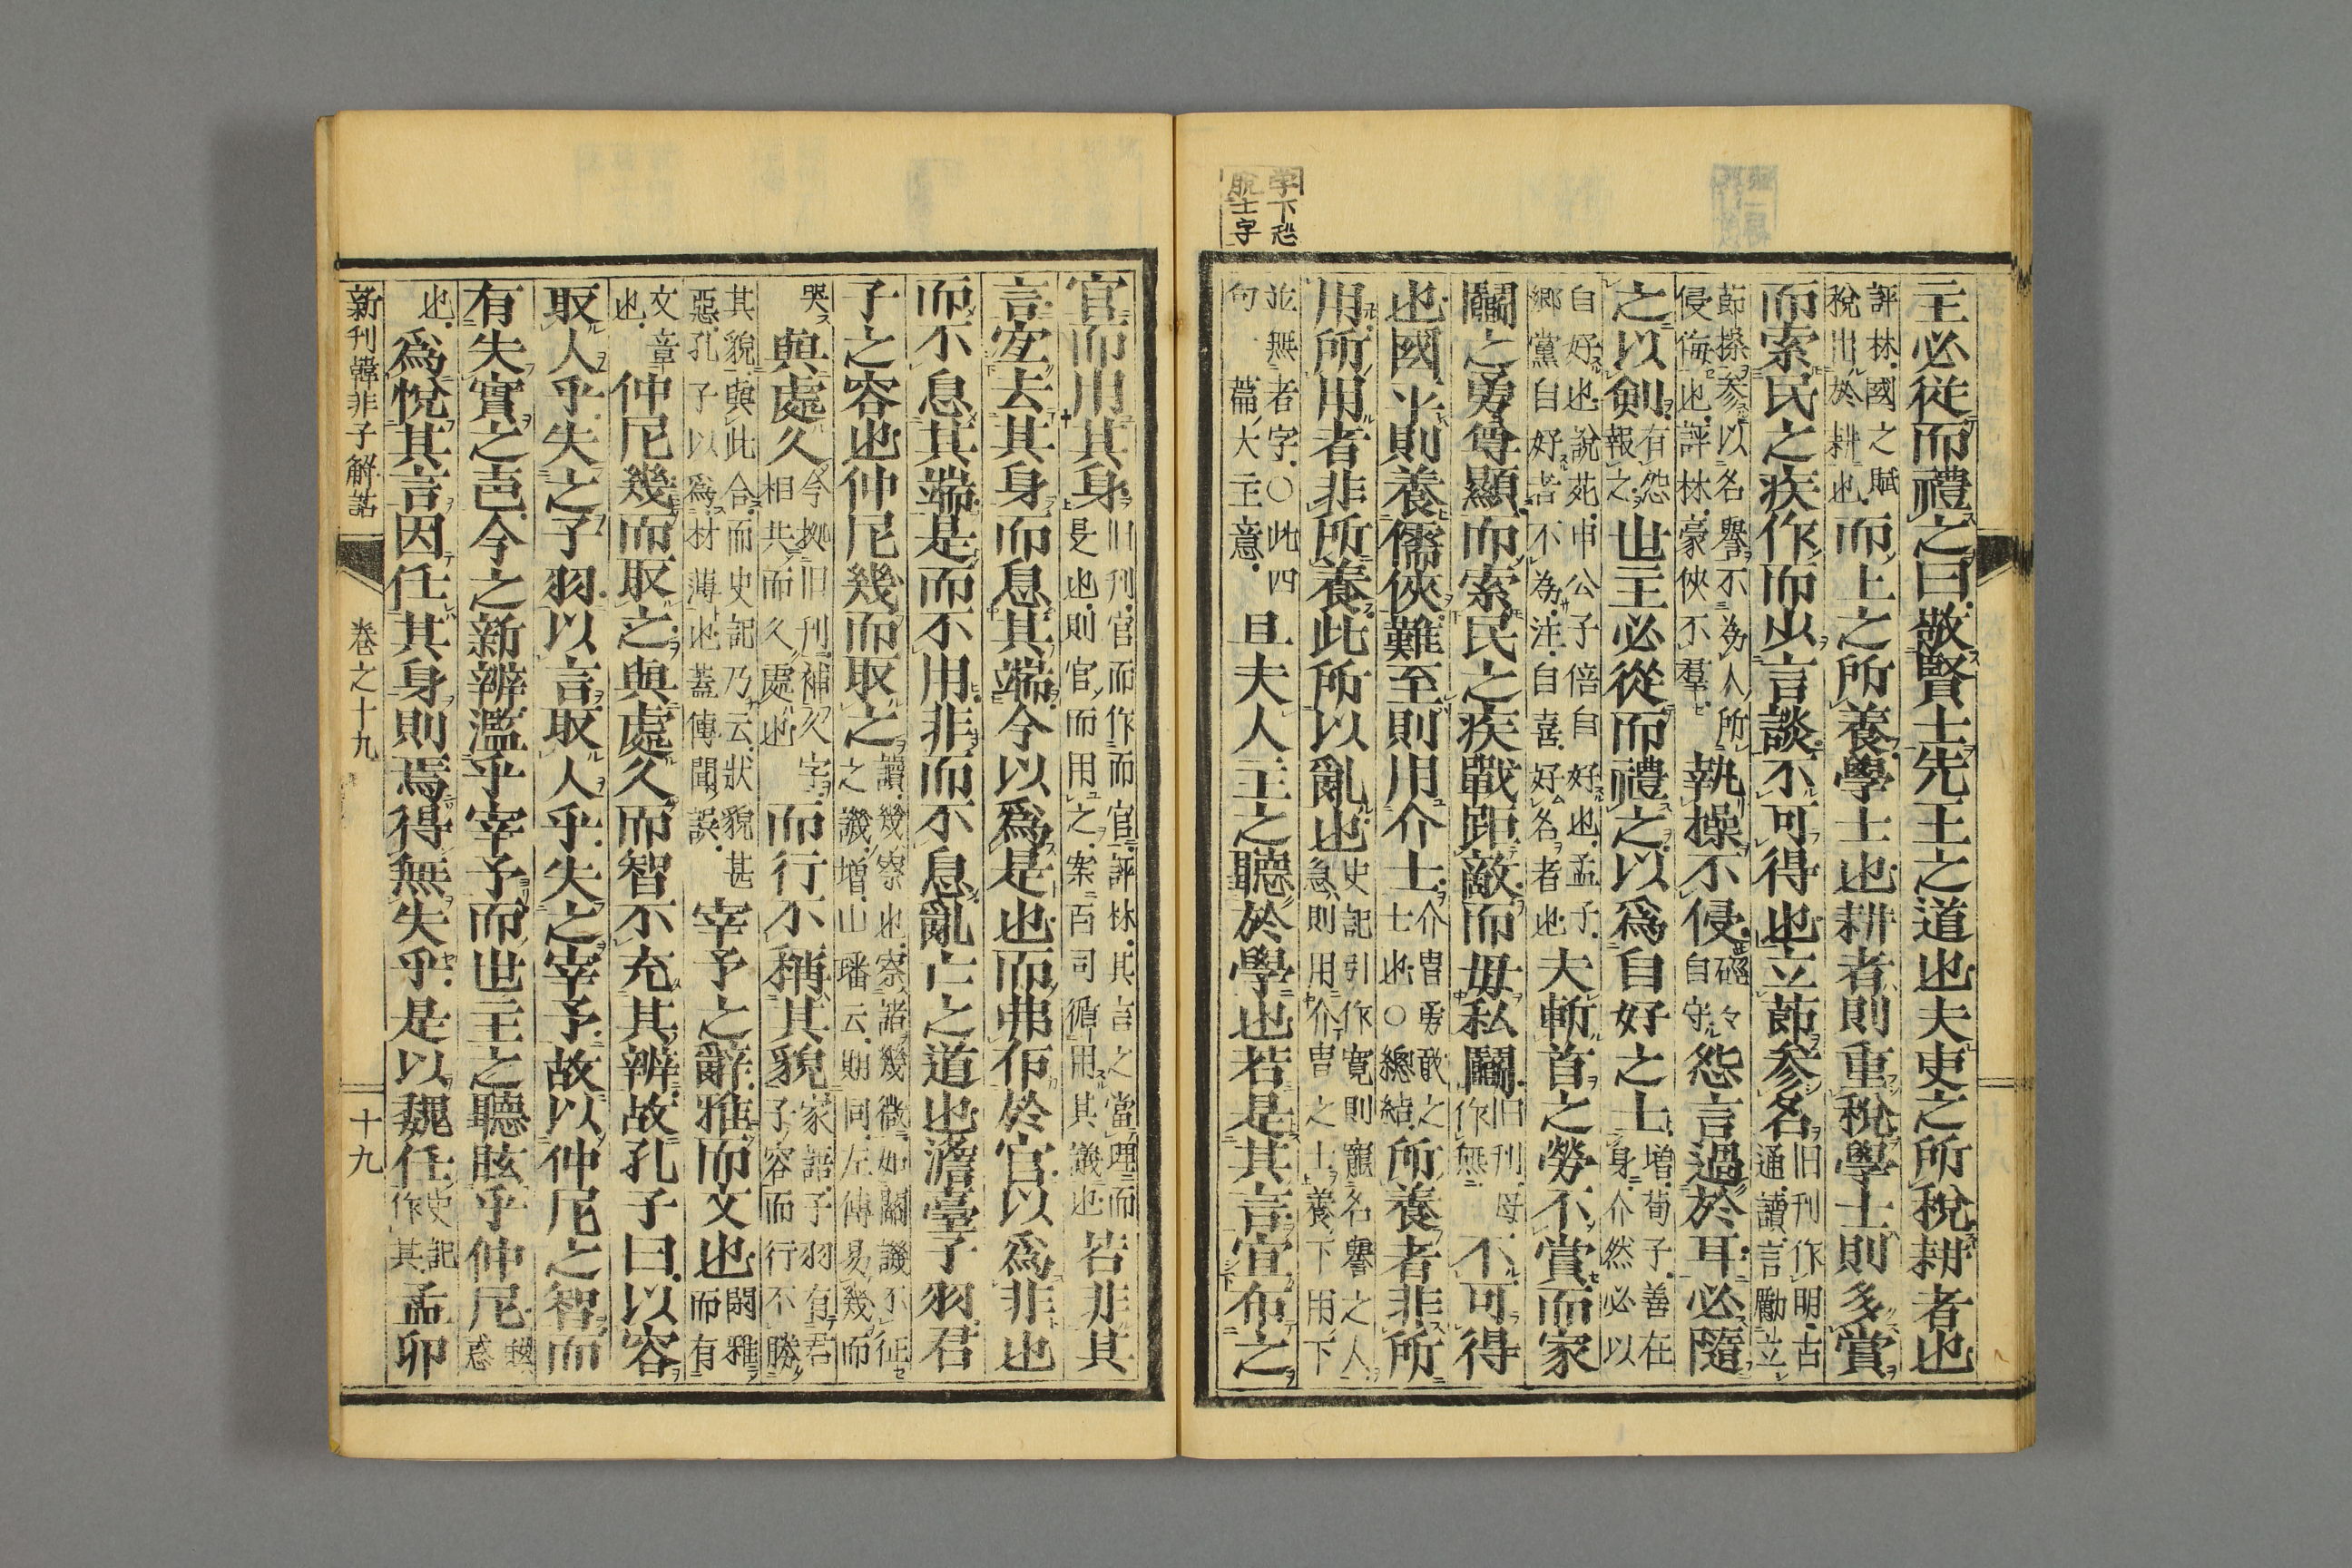 学下恐
脫士字
主必從而禮之曰敬賢士先王之道也夫吏之所稅耕者也
評林國之賦稅出於耕也而上之所養學士也耕者則重稅學士則多賞
而索民之疾作而少言談不可得也立節參名旧刊作明古通讀言勵立
節操參以名譽不為人所侵侮也評林豪俠不羣執操不侵硜々自守怨言過於耳必隨
之以劍有怨報之世主必從而禮之以爲自好之士增荀子善在身介然必以
自好也說苑申公子倍自好也孟子鄉黨自好者不為注自喜好名者也夫斬首之勞不賞而家
鬭之勇尊顯而索民之疾戰距敵而毋私鬭旧刊毋作無不可得
也國平則養儒俠難至則用介士介冑勇敢之士也○總結所養者非所
用所用者非所養此所以亂也史記引作寬則寵名譽之人急則用介冑之士養下用下
並無者字○此四句一篇大主意且夫人主之聽於學也若是其言宜布之
官而用其身旧刊官而作而官評林其言之當理而是也則官而用之案百司循用其議也若非其
言宜去其身而息其端今以爲是也而弗布於官以爲非也
而不息其端是而不用非而不息亂亡之道也澹臺子羽君
子之容也仲尼幾而取之讀幾察也察諸幾微如關譏不征之譏增山璠云期同左傳易幾而
哭與處久今拠旧刊補久字相共而久處也而行不稱其貌家語子羽有君子容而行不勝
其貌與此合而史記乃云狀貌甚惡孔子以為材薄也蓋傳聞誤宰予之辭雅而文也閑雅而有
文章也仲尼幾而取之與處久而智不充其辨故孔子曰以容
取人乎失之子羽以言取人乎失之宰予故以仲尼之智而
有失實之声今之新辨濫乎宰予而世主之聽眩乎仲尼眩惑
也爲悅其言因任其身則焉得無失乎是以魏任史記作其孟卯
新刊韓非子解詁
卷之十九
十九